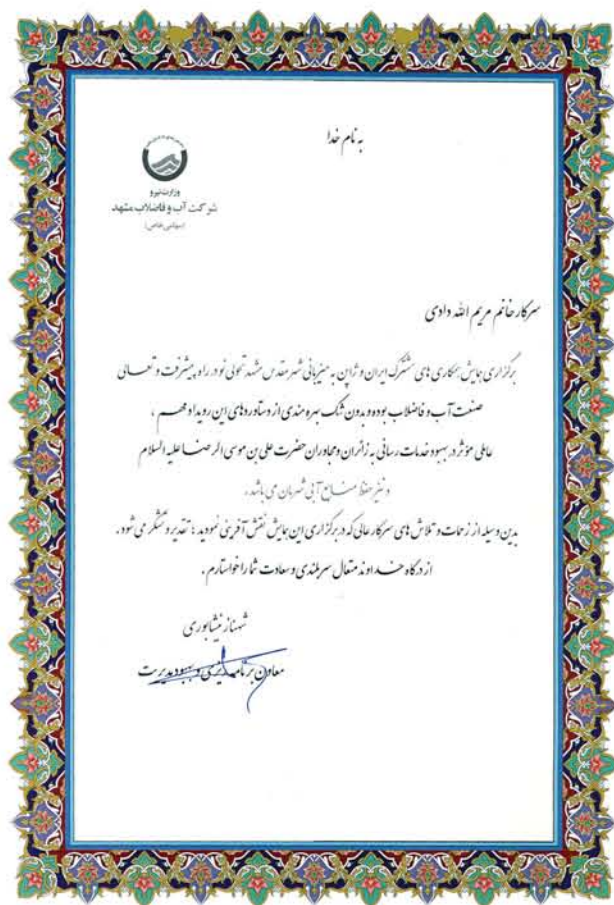 به نام خدا
وزارت نیرو
شرکت آب و فاضلاب مشهد
(سهامی خاص)
سرکار خانم مریم الله دادی
برگزاری همایش همکاری های مشترک ایران و ژاپن به میزبانی شهر مقدس مشهد تحولی نو در راه پیشرفت و تعالی
صنعت آب و فاضلاب بوده و بدون شک بهره مندی از دستاوردهای این رویداد مهم ،
عاملی مؤثر در بهبود خدمات رسانی به زائران و مجاوران حضرت علی بن موسی الرضا علیه السلام
و نیز حفظ منابع آبی شهرمان می باشد.
بدین وسیله از زحمات و تلاش های سرکار عالی که در برگزاری این همایش نقش آفرینی نمودید ؛ تقدیر و تشکر می شود.
از درگاه خداوند متعال سربلندی و سعادت شما را خواستارم .
شهناز نیشابوری
معاون برنامه ریزی و بهبود مدیریت